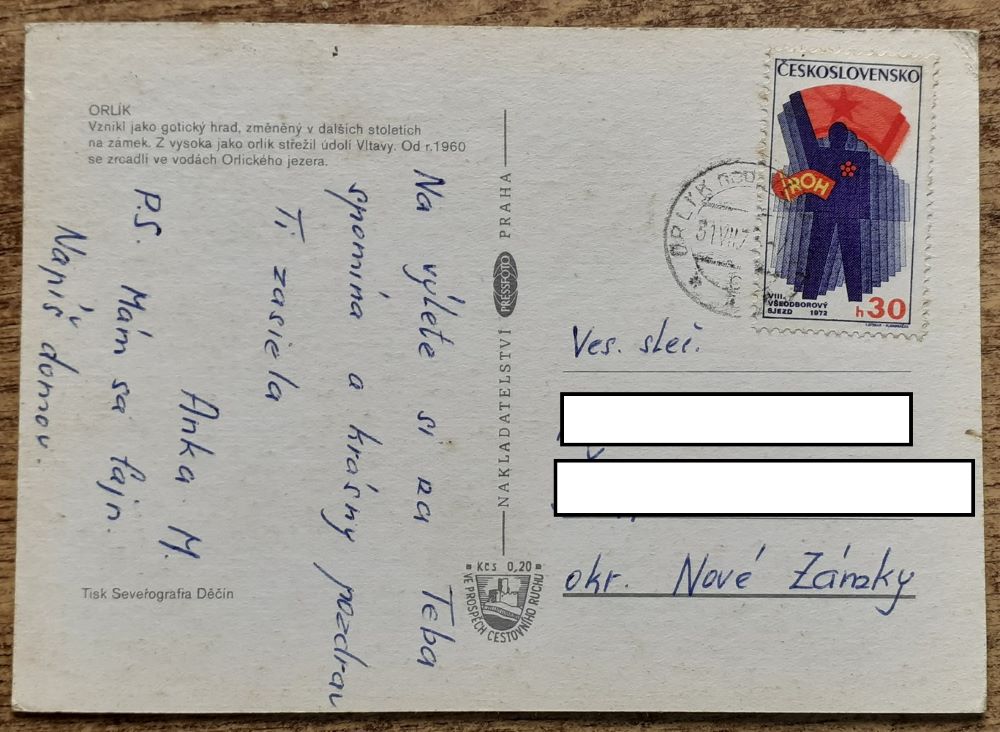 ORLÍK
Vznikl jako gotický hrad, změněný v dalších stoletích
na zámek. Z vysoka jako orlík střežil údolí Vltavy. Od r.1960
se zrcadlí ve vodách Orlického jezera.
Na výlete si na Teba
spomína a krásny pozdrav
Ti zasiela
Anka M.
P.S. Mám sa fajn.
Napíš domov.
Tisk Severografia Děčín
NAKLADATELSTVÍ PRESSFOTO PRAHA
Kčs 0,20
VE PROSPĚCH CESTOVNÍHO RUCHU
ČESKOSLOVENSKO
ROH
VIII.
VŠEODBOROVÝ
SJEZD 1972
h 30
ORLÍK
Ves. sleč.
okr. Nové Zámky